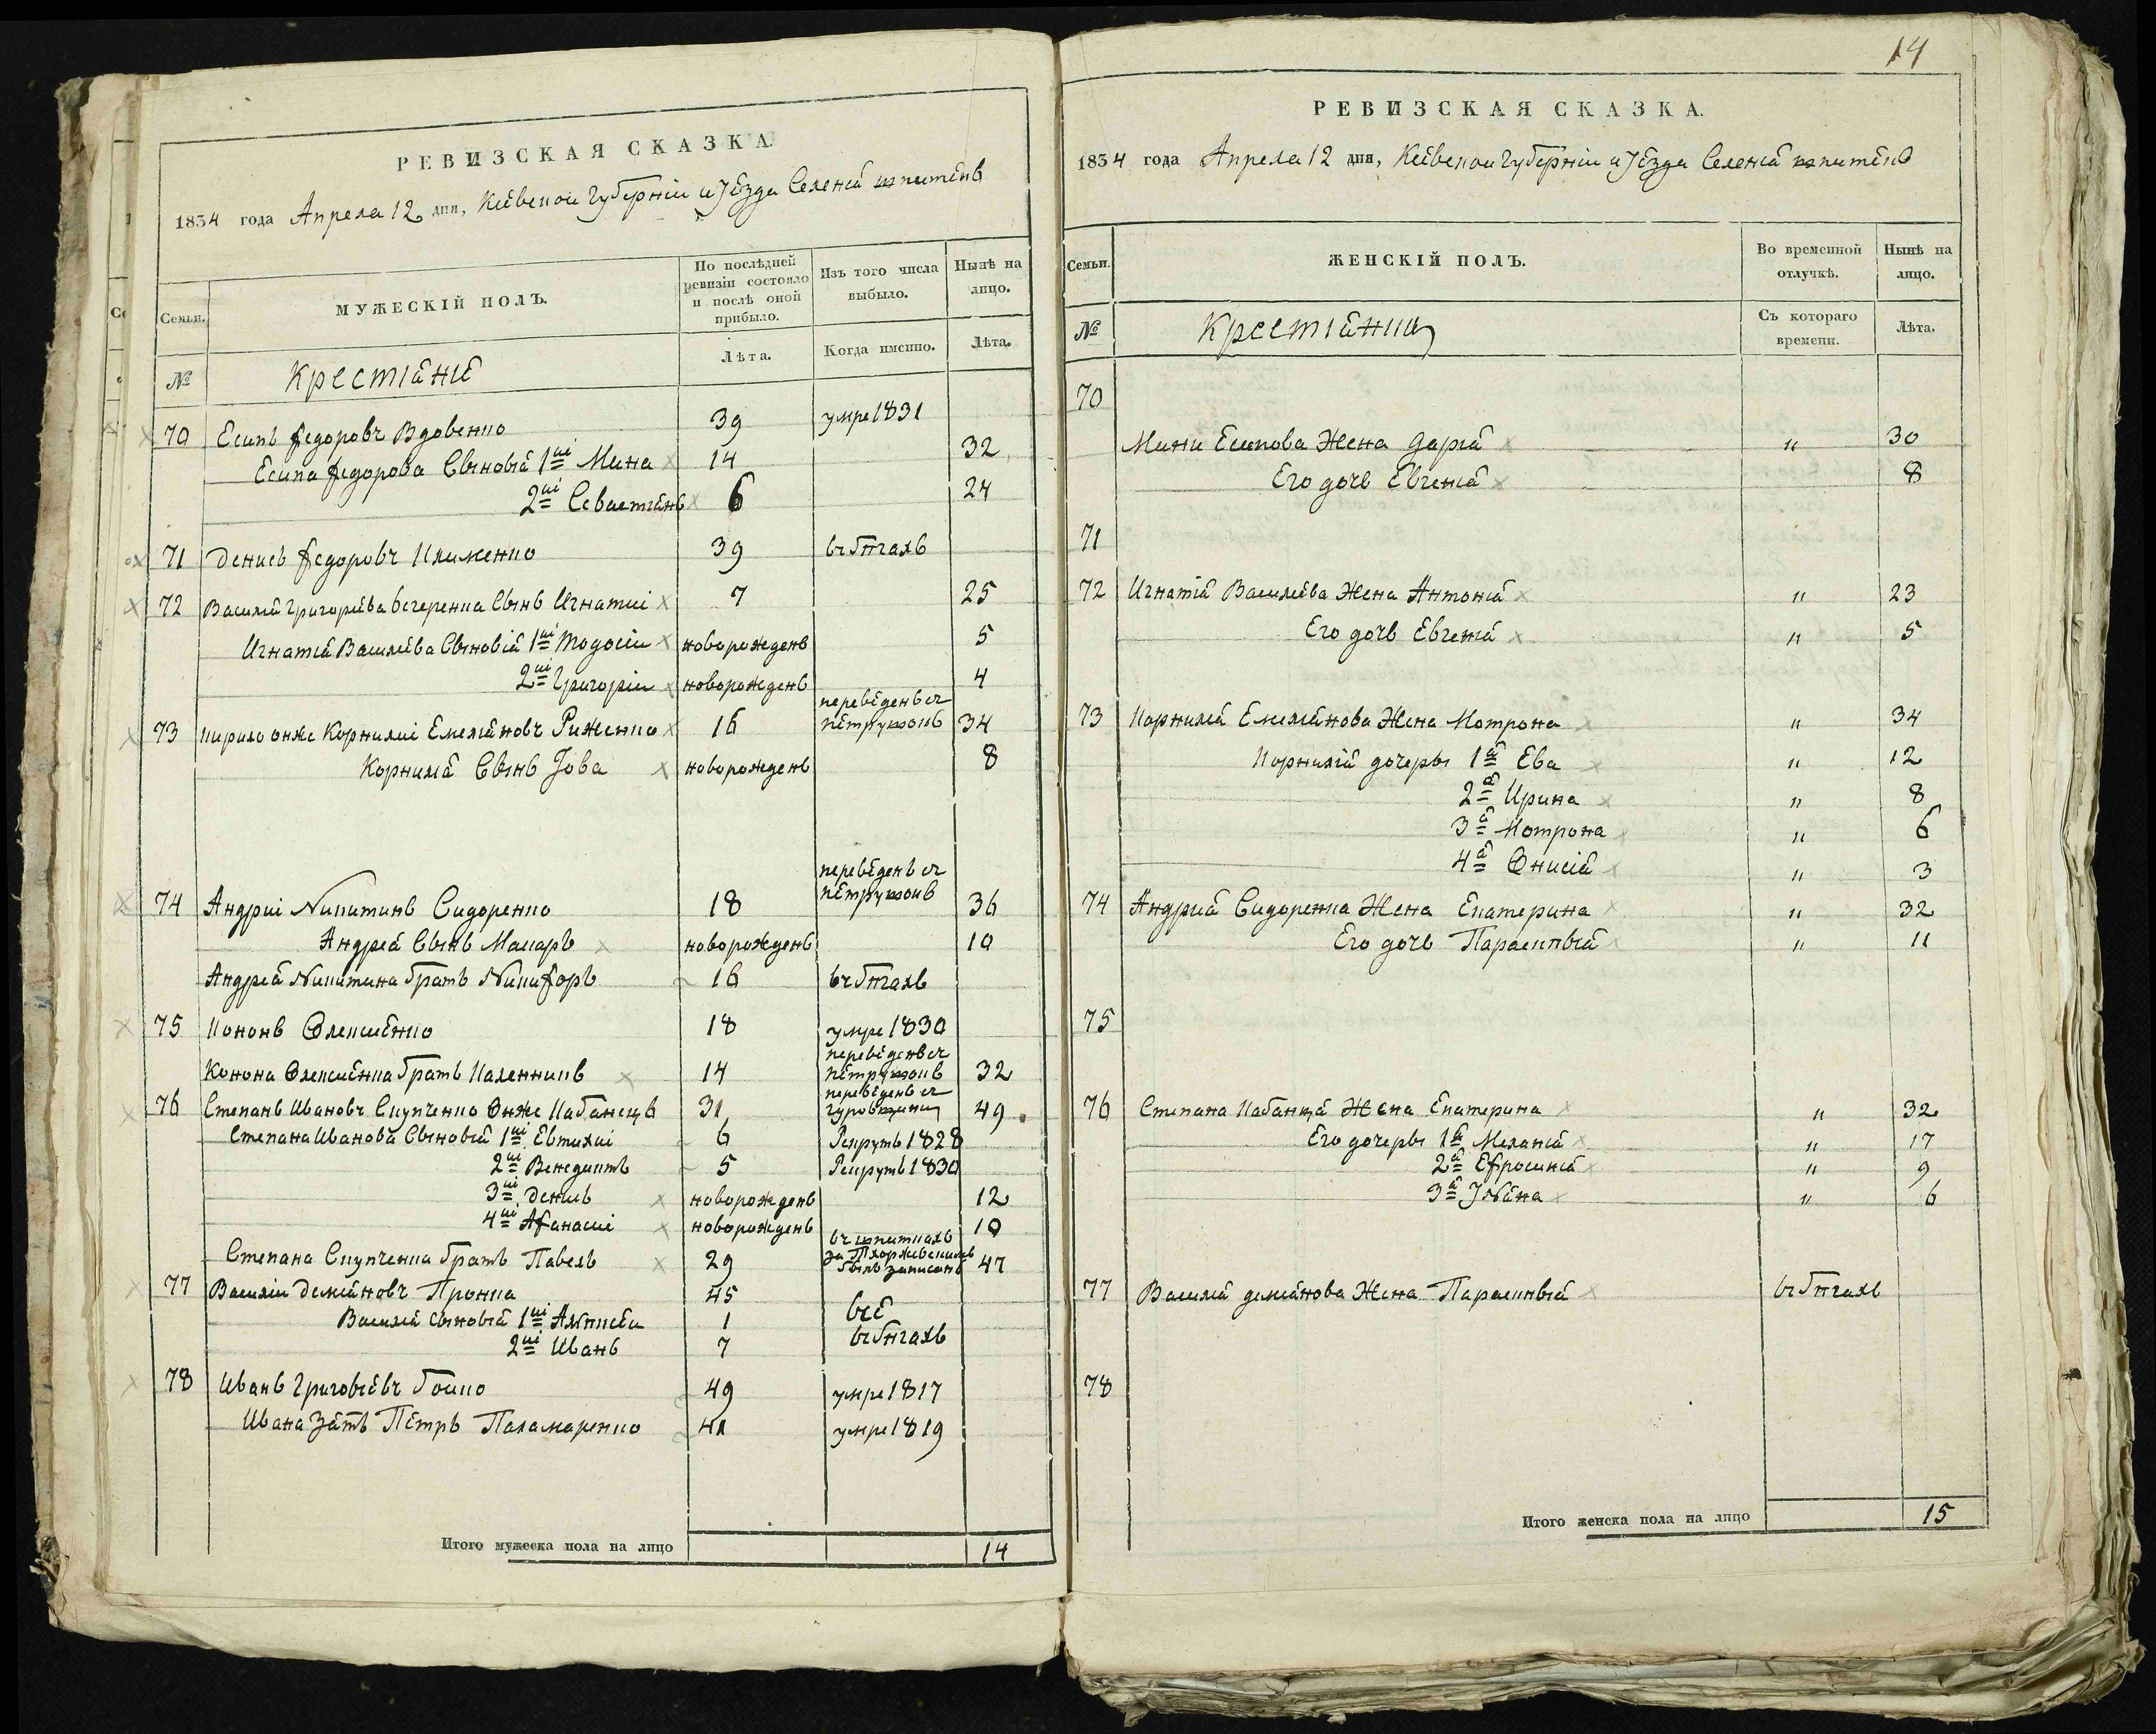 РЕВИЗСКАЯ СКАЗКА.
1834 года Апреля 12 дня, Кіевской Губерніи и Уезда Селенія Шпитекъ
Семьи.
МУЖЕСКІЙ ПОЛЪ.
По послѣдней ревизіи состояло и послѣ оной прибыло.
Изъ того числа выбыло.
Нынѣ на лицо.
№
Крестіяне
Лѣта.
Когда именно.
Лѣта.
70 Есипъ Федоровъ Вдовенко 39 умре 1831
Есипа Федорова Сыновія 1ій Мина 14 32
2ій Севастіянъ 6 24
71 Денисъ Федоровъ Клименко 39 въ бѣгахъ
72 Василія Григоріева Сынъ Игнатій 7 25
Игнатія Василіева Сыновія 1ій Тодосій новорожденъ 5
2ій Григорій новорожденъ 4
73 Кирило онже Корнилій Емеліяновъ Риженко 16 переведенъ съ Петрушокъ 34
Корнилія Сынъ Іова новорожденъ 8
74 Андрій Никитинъ Сидоренко 18 переведенъ съ Петрушокъ 36
Андрея Сынъ Макаръ новорожденъ 10
Андрея Никитина братъ Никифоръ 16 въ бѣгахъ
75 Кононъ Олексіенко 18 умре 1830
Конона Олексіенка братъ Каленникъ 14 переведенъ съ Петрушокъ 32
76 Степанъ Ивановъ Скупченко Онже Кабанецъ 31 переведенъ съ Гуровщины 49
Степана Иванова Сыновія 1ій Евтихій 6 Рекрутъ 1828
2ій Венедиктъ 5 Рекрутъ 1830
3ій Денисъ новорожденъ 12
4ій Афанасій новорожденъ 10
Степана Скупченка братъ Павелъ 29 въ Шпиткахъ за былъ записанъ 47
77 Василій Деміяновъ Пронка 45
Василія Сыновія 1ій Алексеи 1 всѣ
2ій Иванъ 7 въ бѣгахъ
78 Иванъ Григовіевъ Бойко 49 умре 1817
Ивана Зять Петръ Паламаренко 41 умре 1819
Итого мужеска пола на лицо 14
14
РЕВИЗСКАЯ СКАЗКА.
1834 года Апреля 12 дня, Кіевской Губерніи и Уезда Селенія Шпитекъ
Семьи.
ЖЕНСКІЙ ПОЛЪ.
Во временной отлучкѣ.
Нынѣ на лицо.
№
Крестіянки
Съ котораго времени.
Лѣта.
70
Мини Есипова Жена Дарія " 30
Его дочь Евгенія 8
71
72 Игнатія Василіева Жена Антонія " 23
Его дочь Евгенія " 5
73 Корнилія Емеліянова Жена Мотрона " 34
Корнилія дочеры 1я Ева " 12
2я Ирина " 8
3я Мотрона " 6
4я Онисія " 3
74 Андрія Сидоренка Жена Екатерина " 32
Его дочь Параскивія " 11
75
76 Степана Кабанця Жена Екатерина " 32
Его дочеры 1я Меланія " 17
2я Ефросинія " 9
3я Уліяна " 6
77 Василія Деміянова Жена Параскивія въ бѣгахъ
78
Итого женска пола на лицо 15